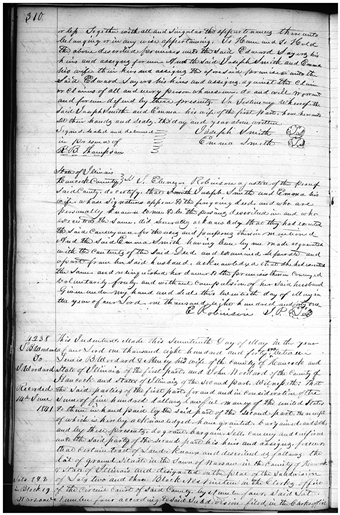 310
or less Together with all and Singular the appurtenances thereunto
belonging or in any wise appertaining. To Have and To Hold
the above described premises unto the Said Edward Sayers his
heirs and assigns forever And the Said Joseph Smith and Emma
his wife their heirs and assigns the aforesaid premises unto the
Said Edward Sayers his heirs and assigns against the Claim
or Claims of all and every person whomsoever do and will Warrant
and forever defend by these presents. In Testimony whereof the
Said Joseph Smith and Emma his wife of the first part have hereunto
set their hands and Seals, the day and year above written
Signed Sealed and delivered
in presence of
Joseph Smith
Emma Smith
R. B. Thompson
State of Illinois
Hancock County
I Ebenezer Robinson a Justice of the peace
Said County do certify that Joseph Smith and Emma his
wife whose signatures appear to the foregoing deed and who are
personally known to me to be the persons described in and who
executed the Same did severally acknowledge that they had executed
the said Conveyance for the uses and purposes therein mentioned
And the Said Emma Smith having been by me made acquainted
with the Contents of the Said Deed and examined separate and
apart from her said husband, acknowledged that she had executed
the Same and relinquished her dower to the premises therein conveyed
voluntarily freely and without Compulsion of her Said husband
Given under my hand and Seal this twentieth day of May in
the year of our Lord one thousand eight hundred and
E. Robinson J P
1238
This Indenture Made this Seventeenth Day of May in the year
of our Lord one thousand eight hundred and forty
To
his wife of the County of Hancock and
State of Illinois of the first part, and John Woodard of the County of
Hancock and State of Illinois of the Second part. Witnesseth: That
Recorded
the Said parties of the first part for and in Consideration of the
14th June
Sum of five hundred dollars, lawful money of the united States
1841
to them in hand paid by the Said party of the Second part. the receipt
of which is hereby acknowledged. Have granted, bargained sold &c
and by these presents do grant bargain Sell, Convey and confirm
unto the Said party of the Second part his heirs and assigns forever
that Certain tract of Land, known and described as follows. the
lot of ground Situate in the Town of Warsaw in the County of Hancock
State of Illinois and designated on the plat of the Subdivision
of Lots two and three Block No Nineteen in the Clerks office
of the Circuit Court of Said County by Number four Said Lot
Number four according to Said Subdivision filed in the Clerks office